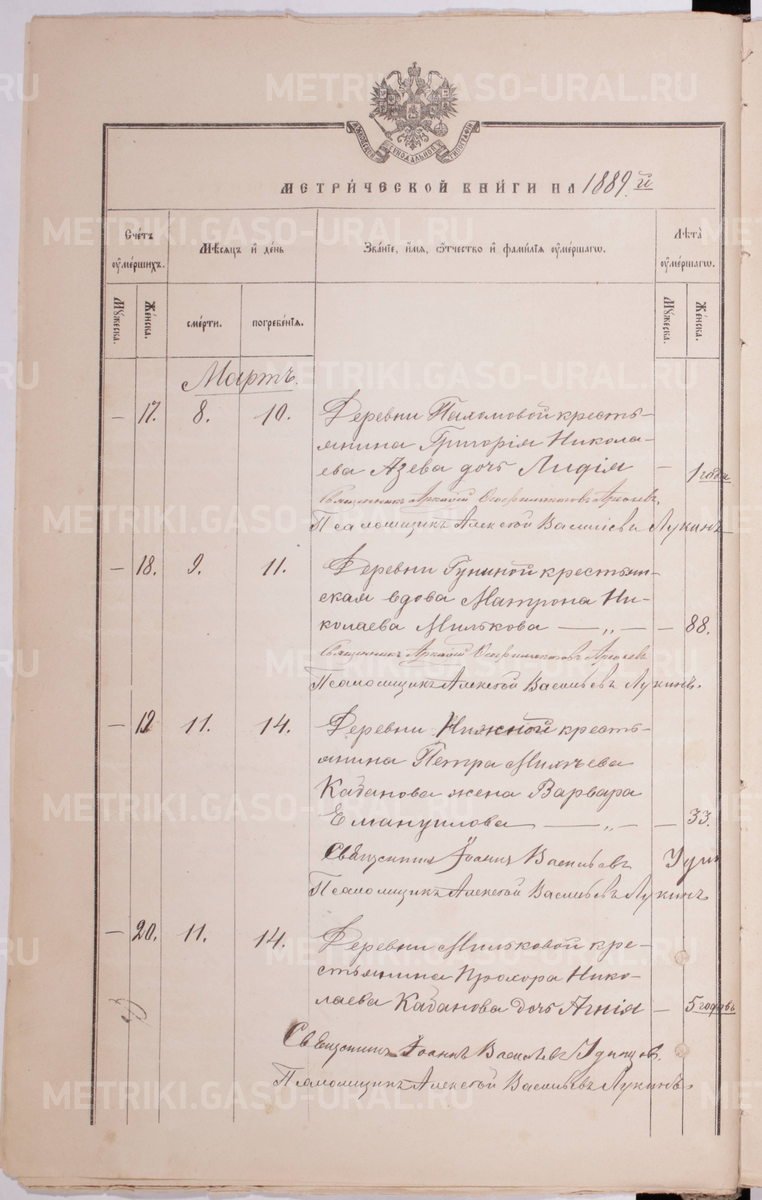 METRIKI.GASO-URAL.RU
МЕТРИ́ЧЕСКОЙ КНИ́ГИ НА 1889.й
Сче́тъ ᲂу҆ме́ршихъ.
Мѣ́сяцъ и҆ де́нь
Зва́нїе, и҆́мя, ѻ҆́тчество и҆ фами́лїѧ ᲂу҆ме́ршагѡ.
Лѣта̀ ᲂу҆ме́ршагѡ.
Мꙋ́жеска.
Же́нска.
сме́рти.
погребе́нїѧ.
Мꙋ́жеска.
Же́нска.
Мартъ.
— 17. 8. 10. Деревни кресть-
янина Григорія Никола-
ева Азева дочь Лидія — 1 года
Священникъ Аркадій
Псаломщикъ Алексѣй Васильевъ Лукинъ
— 18. 9. 11. Деревни Гуниной крестьян-
ская вдова Матрона Ни-
колаева Милькова — „ — — 88.
Священникъ Аркадій
Псаломщикъ Алексѣй Васильевъ Лукинъ.
— 11. 14. Деревни Нижной кресть-
янина Петра
Кабанова жена Варвара
Емануилова — „ — — 33.
Священникъ Іоаннъ Васильевъ
Псаломщикъ Алексѣй Васильевъ Лукинъ
— 20. 11. 14. Деревни Мильковой кре-
стьянина Прохора Нико-
лаева Кабанова дочь Агнія — 5 годовъ
Священникъ Іоаннъ Васильевъ Удинцов.
Псаломщикъ Алексѣй Васильевъ Лукинъ.